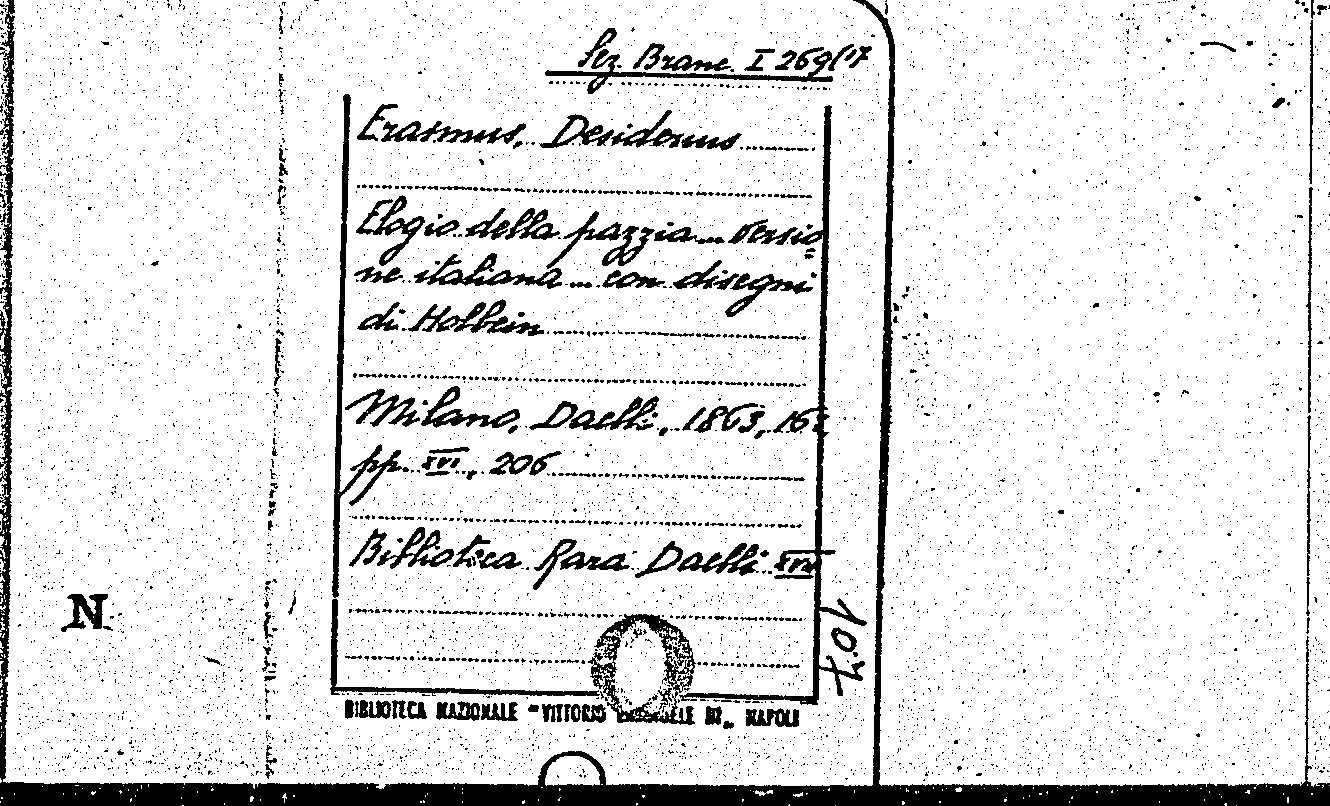 Sez. Branc. I 269(17
Erasmus, Desiderius
Elogio della pazzia... versio
ne italiana ... con disegni
di Holbein
Milano, Daelli, 1863, 16º
pp. XVI, 206
Biblioteca Rara Daelli
107
N
BIBLIOTECA NAZIONALE "VITTORIO EMANUELE III„ NAPOLI